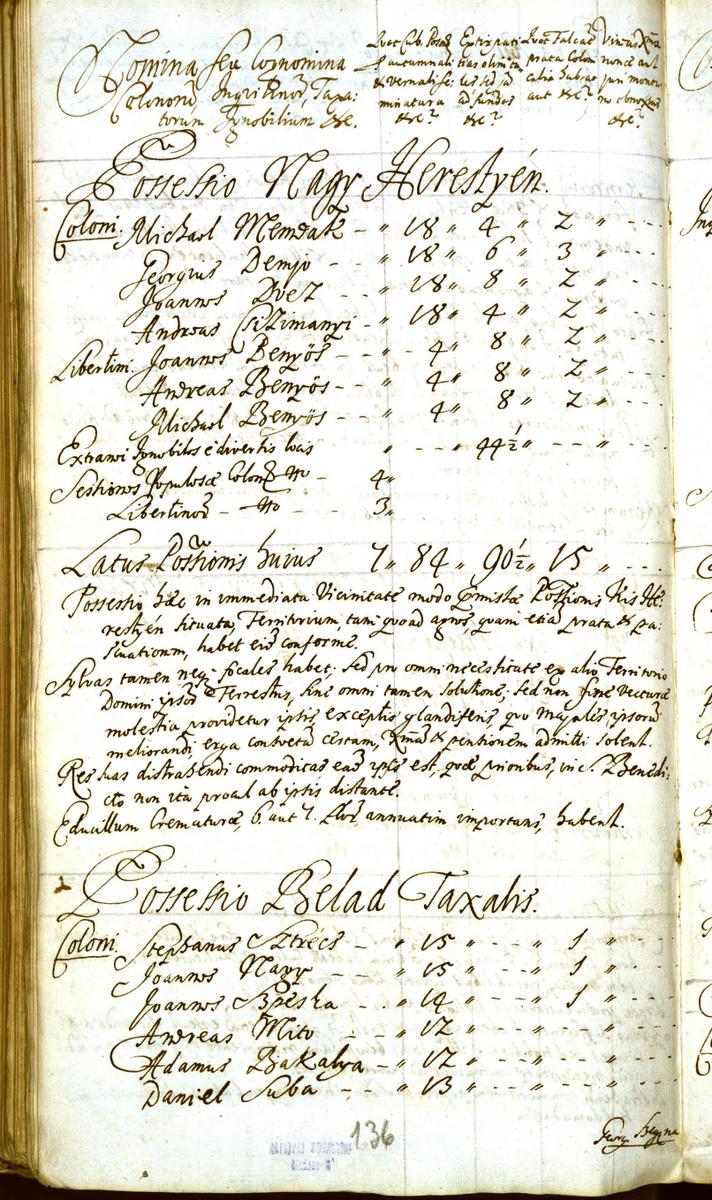 Nomina seu Cognomina
Colonorũ, Inquilinorũ, Taxa:
lium Ignobilium &c.
Quot Cub. Poson.
autumnali
& Vernali se:
minatura
&c?
Extirpati
tias olim
ad fundos
&c?
Quot Falcat.
prata Colon
calia
aut &c?
Vineas
nonae aut
juri mont
no obnoxias
&c?
Possessio Nagy Herestyén.
Coloni. Michael Mendak - " 18 " 4 " 2 " - - -
Georgius Dempo - - " 18 " 6 " 3 " - - -
Joannes Duez - - " 18 " 8 " 2 " - - -
Andreas Csizimanyi - " 18 " 4 " 2 " - - -
Libertini. Joannes Benyös - - " - 4 " 8 " 2 " - - -
Andreas Benyös - - " 4 " 8 " 2 " - - -
Michael Benyös - - " 4 " 8 " 2 " - - -
Extranei Ignobiles e diversis locis " - - 44½ " - - " - - -
Sessiones Populosae Colonorũ No - 4 "
Libertinorũ - - No - - 3 "
Latus Possessionis huius 7 " 84 " 90½ " 15 " - - -
Possessio haec in immediata Vicinitate modo praemissae Possessionis Kis He:
restyén situata, Territorium, tam quoad agros, quam etiã prata & pa:
scuationem, habet eid conforme.
Sylvas tamen neq. focales habet; sed pro omni necessitate ex alio Territorio
Domini ipsorũ Terrestris, sine omni tamen solutione; sed non sine vecturae
molestia providetur ipsis, exceptis glandiferis, quo majales ipsorũ
meliorandi, erga consvetã certam, & pensionem admitti solent.
Res suas distrahendi commoditas eadẽ ipsis est, quae prioribus, in S. Benedi:
cto non ita procul ab ipsis distante.
Educillum Crematurae, 6. aut 7. flor. annuatim importans, habent.
Possessio Belad Taxalis.
Coloni. Stephanus Sztrecs - " 15 " - - " 1 " - - -
Joannes Nagy - - " 15 " - - " 1 " - - -
Joannes Breska - - " 14 " - - " 1 " - - -
Andreas Mito - - " 12 " - - " - - " - - -
Adamus Bakalya - - " 12 " - - " - - " - - -
Daniel Suba - - " 13 " - - " - - " - - -
136